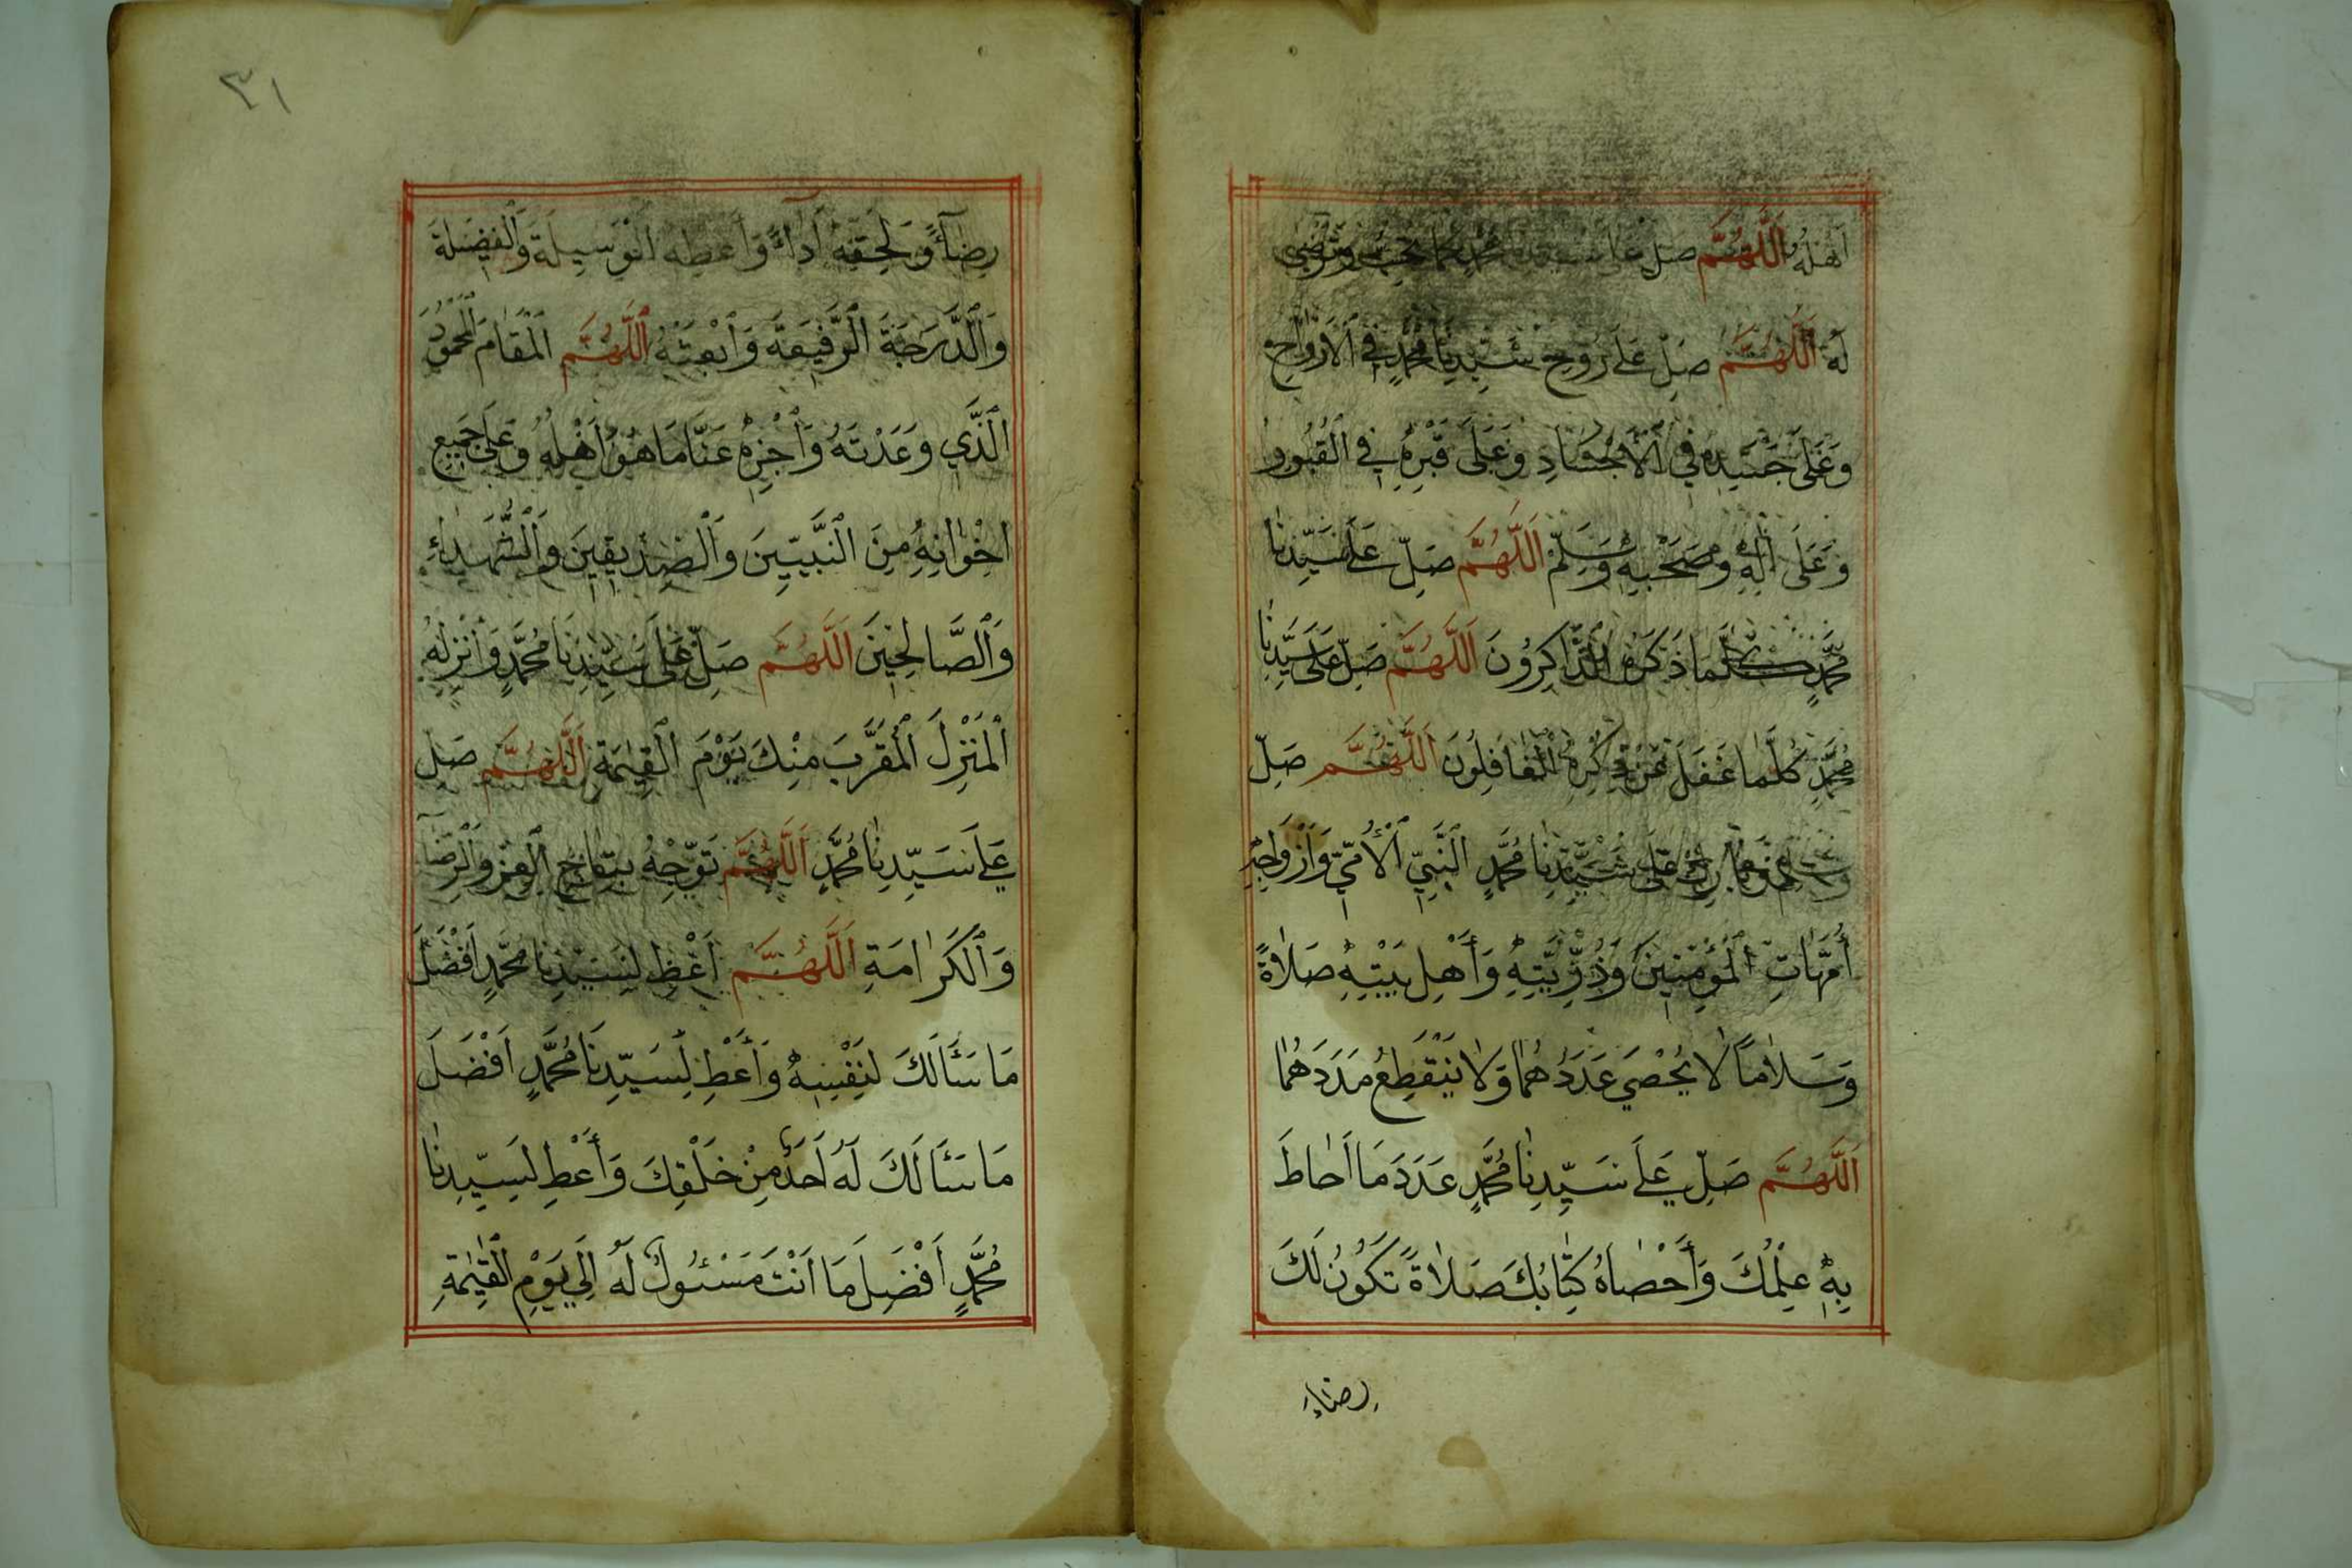 أَهْلُهُ اَللّٰهُمَّ صَلِّ عَلَى سَيِّدِنَا مُحَمَّدٍ كَمَا تُحِبُّ وَتَرْضَى
لَهُ اَللّٰهُمَّ صَلِّ عَلَى رُوحِ سَيِّدِنَا مُحَمَّدٍ فِي الْاَرْوَاحِ
وَعَلَى جَسَدِهِ فِي الْاَجْسَادِ وَعَلَى قَبْرِهِ فِي الْقُبُورِ
وَعَلَى اٰلِهِ وَصَحْبِهِ وَسَلِّمْ اَللّٰهُمَّ صَلِّ عَلَى سَيِّدِنَا
مُحَمَّدٍ كُلَّمَا ذَكَرَهُ الذَّاكِرُونَ اَللّٰهُمَّ صَلِّ عَلَى سَيِّدِنَا
مُحَمَّدٍ كُلَّمَا غَفَلَ عَنْ ذِكْرِهِ الْغَافِلُونَ اَللّٰهُمَّ صَلِّ
وَسَلِّمْ وَبَارِكْ عَلَى سَيِّدِنَا مُحَمَّدٍ النَّبِيِّ الْاُمِّيِّ وَاَزْوَاجِهِ
اُمَّهَاتِ الْمُؤْمِنِينَ وَذُرِّيَّتِهِ وَاَهْلِ بَيْتِهِ صَلَاةً
وَسَلَامًا لَا يُحْصَى عَدَدُهُمَا وَلَا يَنْقَطِعُ مَدَدَهُمَا
اَللّٰهُمَّ صَلِّ عَلَى سَيِّدِنَا مُحَمَّدٍ عَدَدَ مَا اَحَاطَ
بِهِ عِلْمُكَ وَاَحْصَاهُ كِتَابُكَ صَلَاةً تَكُونُ لَكَ
رضاء
٣١
رِضَآءً وَلِحَقِّهِ اَدَآءً وَاَعْطِهِ الْوَسِيلَةَ وَالْفَضِيلَةَ
وَالدَّرَجَةَ الرَّفِيعَةَ وَابْعَثْهُ اَللّٰهُمَّ الْمَقَامَ الْمَحْمُودَ
الَّذِي وَعَدْتَهُ وَاَجْزِهِ عَنَّا مَا هُوَ اَهْلُهُ وَعَلَى جَمِيعِ
اِخْوَانِهِ مِنَ النَّبِيِّينَ وَالصِّدِّيقِينَ وَالشُّهَدَاءِ
وَالصَّالِحِينَ اَللّٰهُمَّ صَلِّ عَلَى سَيِّدِنَا مُحَمَّدٍ وَاَنْزِلْهُ
الْمَنْزِلَ الْمُقَرَّبَ مِنْكَ يَوْمَ الْقِيٰمَةِ اَللّٰهُمَّ صَلِّ
عَلَى سَيِّدِنَا مُحَمَّدٍ اَللّٰهُمَّ تَوِّجْهُ بِتَاجِ الْعِزِّ وَالرِّضَآ
وَالْكَرَامَةِ اَللّٰهُمَّ اَعْطِ لِسَيِّدِنَا مُحَمَّدٍ اَفْضَلَ
مَا سَأَلَكَ لِنَفْسِهِ وَاَعْطِ لِسَيِّدِنَا مُحَمَّدٍ اَفْضَلَ
مَا سَأَلَكَ لَهُ اَحَدٌ مِنْ خَلْقِكَ وَاَعْطِ لِسَيِّدِنَا
مُحَمَّدٍ اَفْضَلَ مَا اَنْتَ مَسْئُولٌ لَهُ اِلَى يَوْمِ الْقِيٰمَةِ